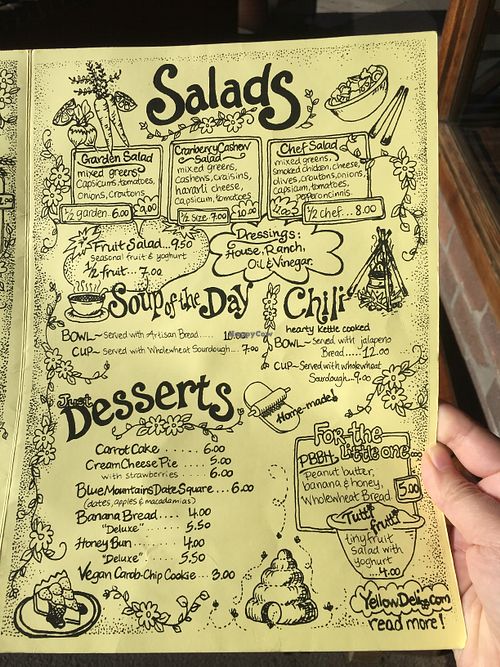 Salads
Garden Salad
mixed greens
Capsicums, tomatoes,
onions, croutons
½ garden. 6.00 9.00
Cranberry Cashew
Salad
mixed greens,
Cashews, craisins,
havarti cheese,
capsicum, tomatoes
½ size 7.00 10.00
Chef Salad
mixed greens,
smoked chicken, cheese,
olives, croutons, onions,
capsicum, tomatoes,
peperoncinnis
½ chef.... 8.00
Fruit Salad...9.50
Seasonal fruit & yoghurt
½ fruit... 7.00
Dressings:
House, Ranch,
Oil & Vinegar.
Soup of the Day
BOWL~ Served with Artisan Bread..... 10.00
CUP~ Served with Wholewheat Sourdough... 7.00
HappyCow
Chili
hearty kettle cooked
BOWL~ Served with jalapeno
Bread.....12.00
CUP~ Served with wholewheat
Sourdough...9.00
Just
Desserts
Home-made!
Carrot Cake ...... 6.00
Cream Cheese Pie .... 5.00
with strawberries ..... 6.00
Blue Mountains Date Square... 6.00
(dates, apples & macadamias)
Banana Bread.... 4.00
"Deluxe" .... 5.50
Honey Bun ..... 4.00
"Deluxe" .... 5.50
Vegan Carob-Chip Cookie... 3.00
For the
little one...
PBBH
Peanut butter,
banana & honey,
Wholewheat Bread
5.00
Tutti
frutti
tiny fruit
salad with
yoghurt
4.00
YellowDeli.com
read more!